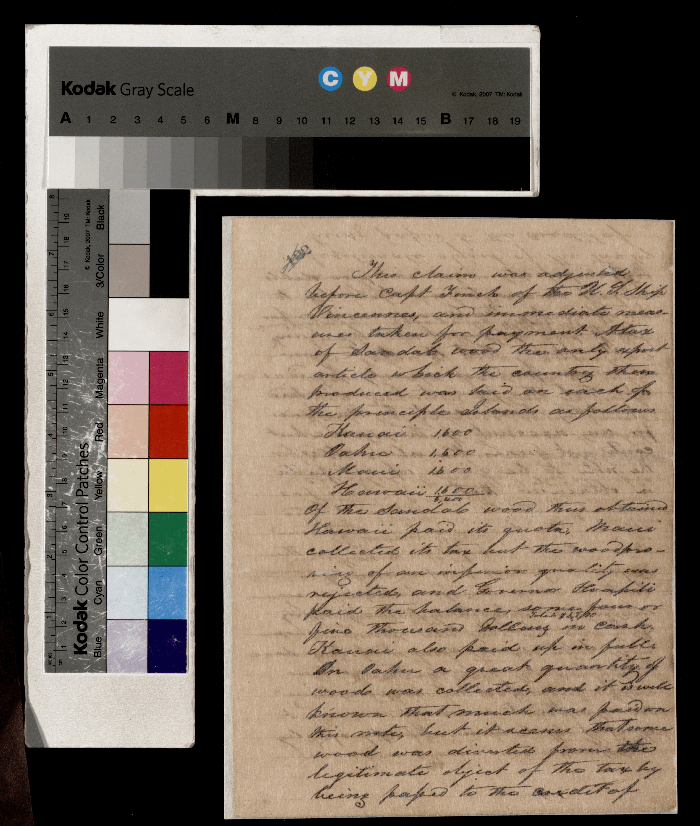 Kodak Gray Scale
C Y M
© Kodak, 2007 TM: Kodak
A 1 2 3 4 5 6 M 8 9 10 11 12 13 14 15 B 17 18 19
Kodak Color Control Patches
© Kodak, 2007 TM: Kodak
Blue Cyan Green Yellow Red Magenta White 3/Color Black
This claim was adjusted
before Capt Finch of the U.S. Ship
Vincennes, and immediate meas-
ures taken for payment A tax
of Sandal wood the only export
article which the country then
produced was laid on each of
the principle Islands as follows
Kauai 1500
Oahu 1,500
Maui 1500
Hawaii 1500
Of the Sandal wood thus obtained
Hawaii paid its quota, Maui
collected its tax but the wood pro-
ving of an inferior quality was
rejected, and Governor Hoapili
paid the balance, some four or
five thousand dollars in cash,
Kauai also paid up in full.
On Oahu a great quantity of
wood was collected, and it is well
known that much was paid on
this note, but it seems that some
wood was diverted from the
legitimate object of the tax by
being passed to the credit of